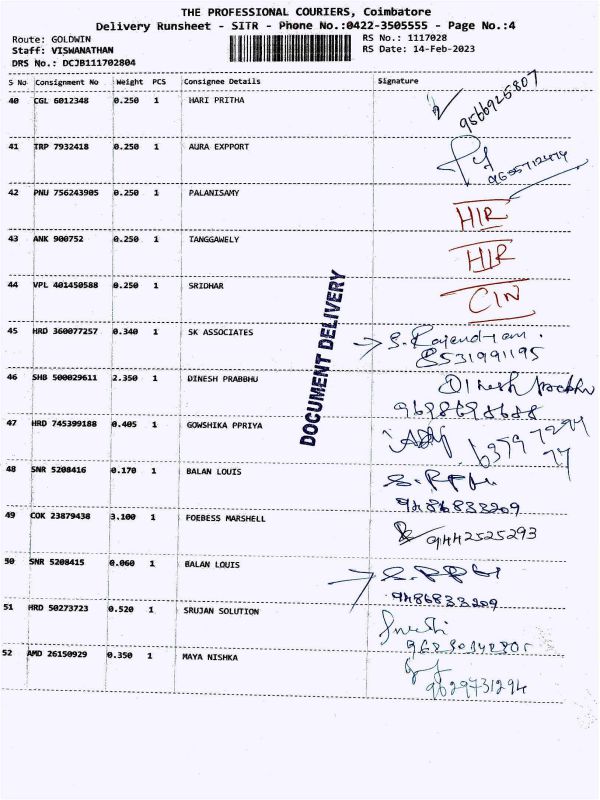 THE PROFESSIONAL COURIERS, Coimbatore
Delivery Runsheet - SITR - Phone No.:0422-3505555 - Page No.:4
Route: GOLDWIN RS No.: 1117028
Staff: VISWANATHAN RS Date: 14-Feb-2023
DRS No.: DCJB111702804
S No Consignment No Weight PCS Consignee Details Signature
40 CGL 6012348 0.250 1 HARI PRITHA
9566926807
41 TRP 7932418 0.250 1 AURA EXPPORT
42 PNU 756243905 0.250 1 PALANISAMY
HIR
43 ANK 900752 0.250 1 TANGGAWELY
HIR
44 VPL 401450588 0.250 1 SRIDHAR
CIN
DOCUMENT DELIVERY
45 HRD 360077257 0.340 1 SK ASSOCIATES
8531991195
46 SHB 500029611 2.350 1 DINESH PRABBHU
47 HRD 745399188 0.405 1 GOWSHIKA PPRIYA
48 SNR 5208416 0.170 1 BALAN LOUIS
9486833209
49 COK 23879438 3.100 1 FOEBESS MARSHELL
9442525293
50 SNR 5208415 0.060 1 BALAN LOUIS
9486833209
51 HRD 50273723 0.520 1 SRUJAN SOLUTION
52 AMD 26150929 0.350 1 MAYA NISHKA
9629731294